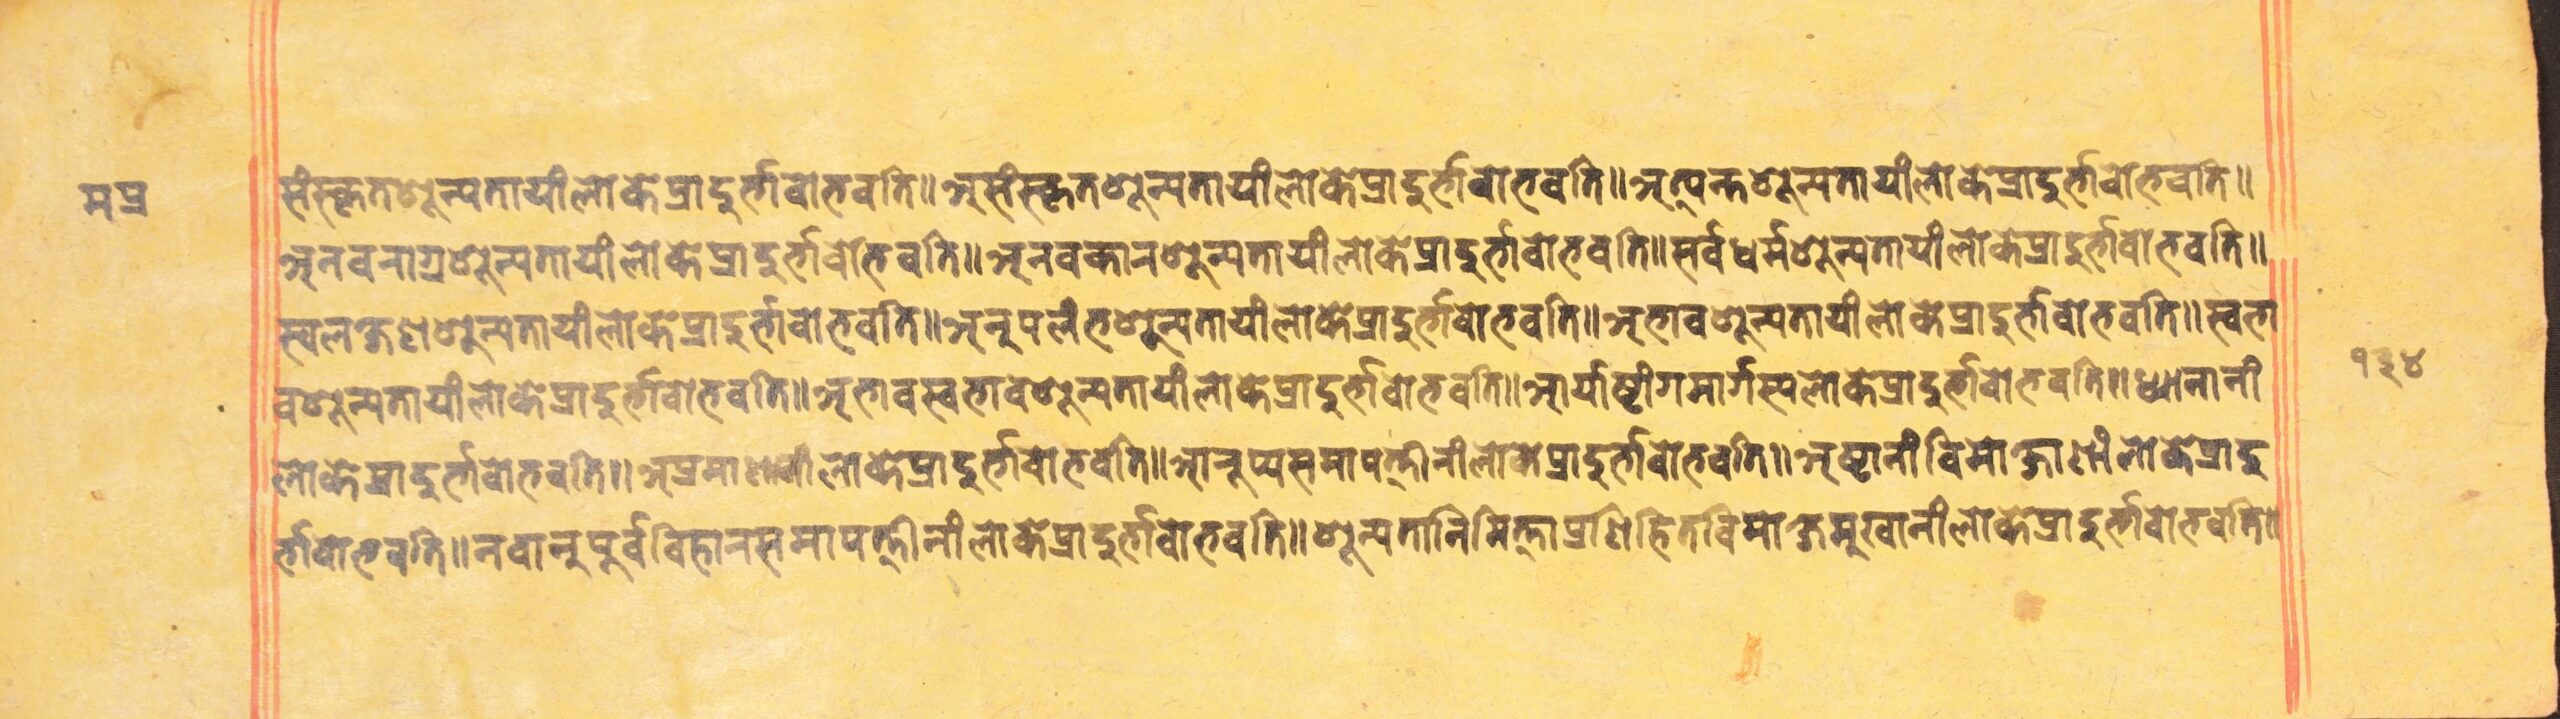 मप्र
संस्कृतशून्यतायां लोके प्रादुर्भावो भवति॥ असंस्कृतशून्यतायां लोके प्रादुर्भावो भवति॥ अत्यन्तशून्यतायां लोके प्रादुर्भावो भवति॥
अनवनाग्रशून्यतायां लोके प्रादुर्भावो भवति॥ अनवकानशून्यतायां लोके प्रादुर्भावो भवति॥ सर्वधर्मशून्यतायां लोके प्रादुर्भावो भवति॥
स्वलक्षणशून्यतायां लोके प्रादुर्भावो भवति॥ अनुपलंभशून्यतायां लोके प्रादुर्भावो भवति॥ अभावशून्यतायां लोके प्रादुर्भावो भवति॥ स्वभा
वशून्यतायां लोके प्रादुर्भावो भवति॥ अभावस्वभावशून्यतायां लोके प्रादुर्भावो भवति॥ आर्याष्टांगमार्गस्य लोके प्रादुर्भावो भवति॥ ध्यानानां
लोके प्रादुर्भावो भवति॥ अप्रमाणानां लोके प्रादुर्भावो भवति॥ आनुप्यसमापत्तीनां लोके प्रादुर्भावो भवति॥ अष्टानां विमोक्षाणां लोके प्रादु
र्भावो भवति॥ नवानुपूर्वविहानसमापत्तीनां लोके प्रादुर्भावो भवति॥ शून्यतानिमित्ताप्रणिहितविमोक्षमुखानां लोके प्रादुर्भावो भवति॥
१३४